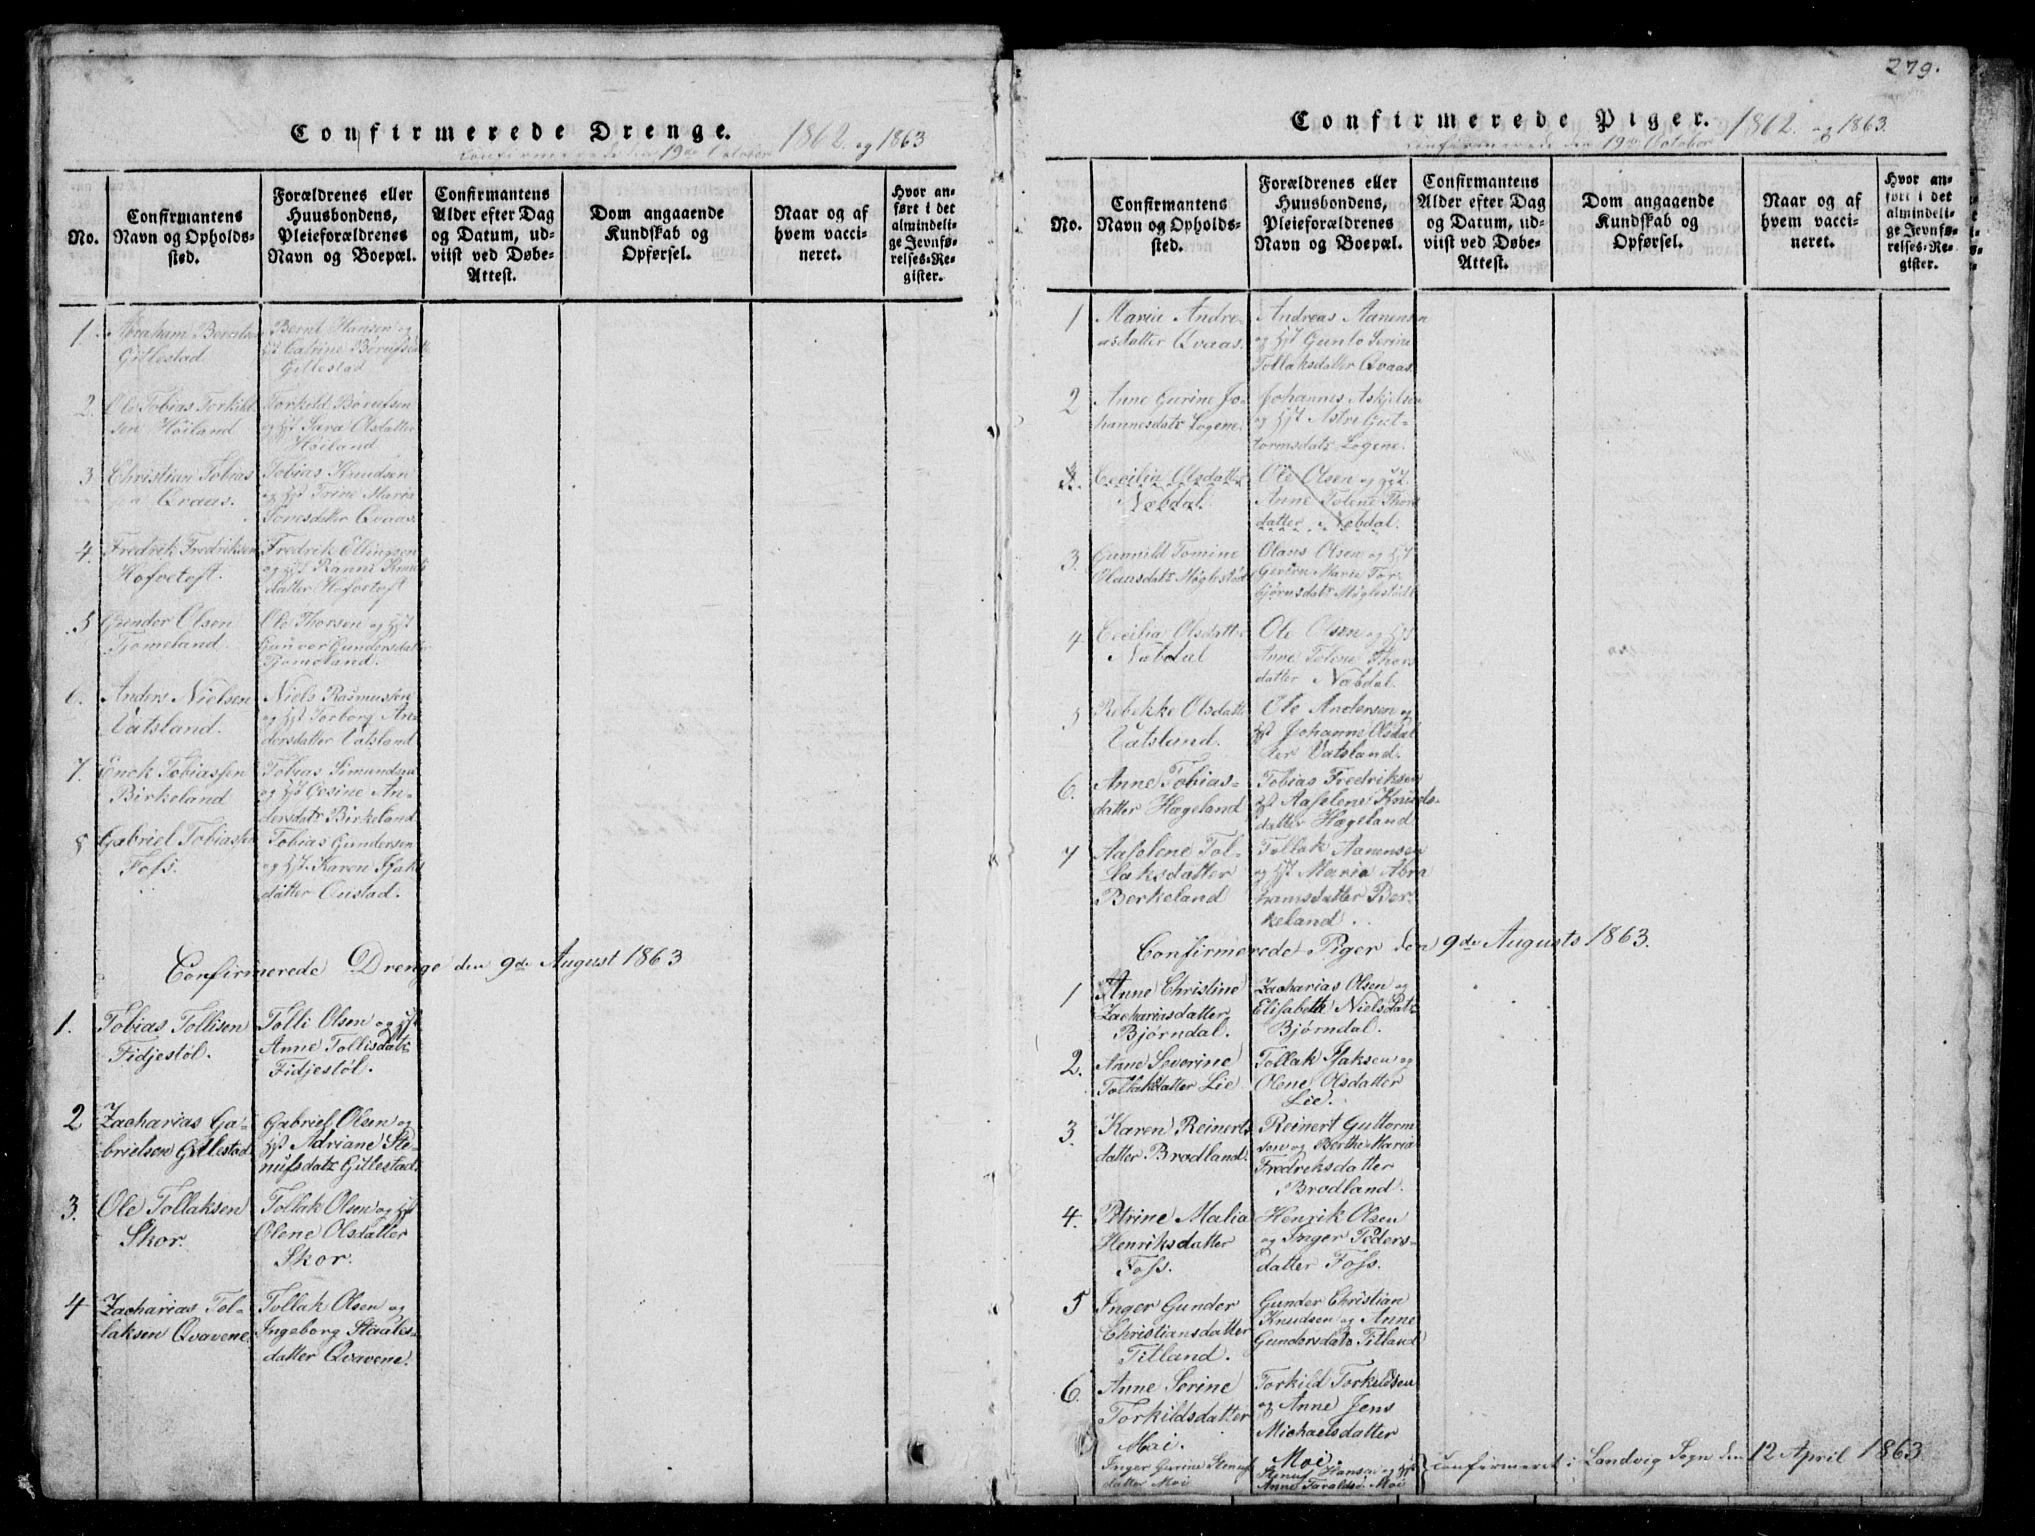 Confirmerede Drenge. 1862. og 1863
Confirmerede den 19de October
No.
Confirmantens
Navn og Opholds-
sted.
Forældrenes eller
Huusbondens,
Pleieforældrenes
Navn og Boepæl.
Confirmantens
Alder efter Dag
og Datum, ud-
viist ved Døbe-
Attest.
Dom angaaende
Kundskab og
Opførsel.
Naar og af
hvem vacci-
neret.
Hvor an-
ført i det
almindeli-
ge Jevnfø-
relses-Re-
gister.
1. Abraham Berentsen
Gitlestad
Bernt Hansen og
Gitlestad
2. Ole Tobias Torkild-
sen Høiland
Torkild Børufsen
og Hst Sara Olsdatter
Høiland
3 Christian Tobias
Qvaas.
Tobias Knudsen
og Hst Trine Maria
Qvaas.
4. Fredrik Fredriksen
Hofvetoft.
Fredrik Ellingsen
og Hst Ranni Knuds
datter Hofvetoft
5 Gunder Olsen
Tjomeland.
Ole Thorsen og Hst
Gunvor Gundersdatter
Tjomeland.
6. Anders Nielsen
Vatsland.
Niels Rasmussen
og Hst Torborg An-
dersdatter Vatsland
7. Enok Tobiassen
Birkeland
Tobias Simundsen
og Hst Gesine An-
dersdatr Birkeland
8 Gabriel Tobiassen
Foss.
Tobias Gundersen
og Hst. Karen Isaks
datter
Confirmerede Drenge den 9de August 1863
1. Tobias Tollisen
Fidjestøl.
Tolli Olsen og Hst
Anne Tollisdatr
Fidjestøl.
2 Zacharias Ga-
brielsen Gitlestad
Gabriel Olsen og
Hst Adriane Ste-
nufsdatr Gitlestad.
3. Ole Tollaksen
Skor.
Tollak Olsen og Hst
Olene Olsdatter
Skor.
4 Zacharias Tol-
laksen Qvavene.
Tollak Olsen og
Ingeborg Staales-
datter Qvavene.
279.
Confirmerede Piger. 1862. og 1863.
Confirmerede den 19de October
No.
Confirmantens
Navn og Opholds-
sted.
Forældrenes eller
Huusbondens,
Pleieforældrenes
Navn og Boepæl.
Confirmantens
Alder efter Dag
og Datum, ud-
viist ved Døbe-
Attest.
Dom angaaende
Kundskab og
Opførsel.
Naar og af
hvem vacci-
neret.
Hvor an-
ført i det
almindeli-
ge Jevnfø-
relses-Re-
gister.
1 Maria Andre-
asdatter Qvaas.
Andreas Aanensen
og Hst Gunlo Serine
Tollaksdatter Qvaas.
2 Anne Gurine Jo-
hannesdatr Logene.
Johannes Askjelsen
og Hst Astri Gut-
tormsdatr Logene.
Cecilia Olsdatter
Næbdal.
Ole Olsen og Hst.
Anne Tolene Thors
datter Næbdal.
3. Gunnild Tomine
Olausdatr Høglestøl
Olaus Olsen og Hst
Maria Tor-
bjørnsdatr Høglestøl
4 Cecilia Olsdatter
Næbdal
Ole Olsen og Hst
Anne Tolene Thors
datter Næbdal.
5 Rebekke Olsdatter
Vatsland.
Ole Andersen og
Hst Johanne Olsdat
ter Vatsland.
6. Anne Tobias-
datter Hægeland
Tobias Fredriksen
Hst Aaselene Knuds-
datter Hægeland
7 Aaselene Tol-
laksdatter
Berkeland
Tollak Aanensen
og Hst Maria Abra
hamsdatter Ber-
keland.
Confirmerede Piger den 9de Augusts 1863.
1 Anne Christine
Zachariasdatter
Bjørndal.
Zacharias Olsen og
Elisabeth Nielsdatr
Bjørndal.
2. Anne Severine
Tollaksdatter Lie
Tollak Isaksen og
Olene Olsdatter
Lie.
3. Karen Reinerts
datter Brodland.
Reinert Guttorm
sen og Berthe Maria
Fredriksdatter
Brodland.
4. Petrine Malia
Henriksdatter
Foss.
Henrik Olsen
og Inger Peders-
datter Foss.
5 Inger Gunder
Christiansdatter
Titland.
Gunder Christian
Knudsen og Anne
Gundersdatr Titland
6. Anne Serine
Torkildsdatter
Moi.
Torkild Torkildsen
og Anne Jens
Michaelsdatter
Moi.
Inger Gurine Stenufs
datter Moi
Stenuf Hansen og Hst
Anne Taraldsd. Moi
Confirmeret i Landvig Sogn den 12 April 1863